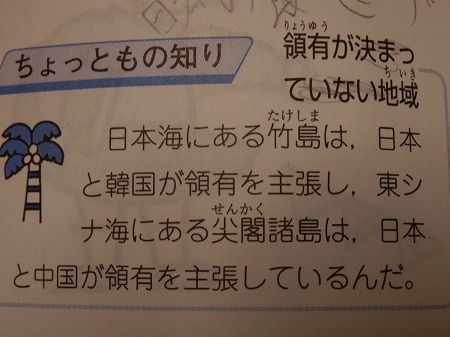 ちょっともの知り
領有が決まっ
ていない地域
日本海にある竹島は，日本
と韓国が領有を主張し，東シ
ナ海にある尖閣諸島は，日本
と中国が領有を主張しているんだ。